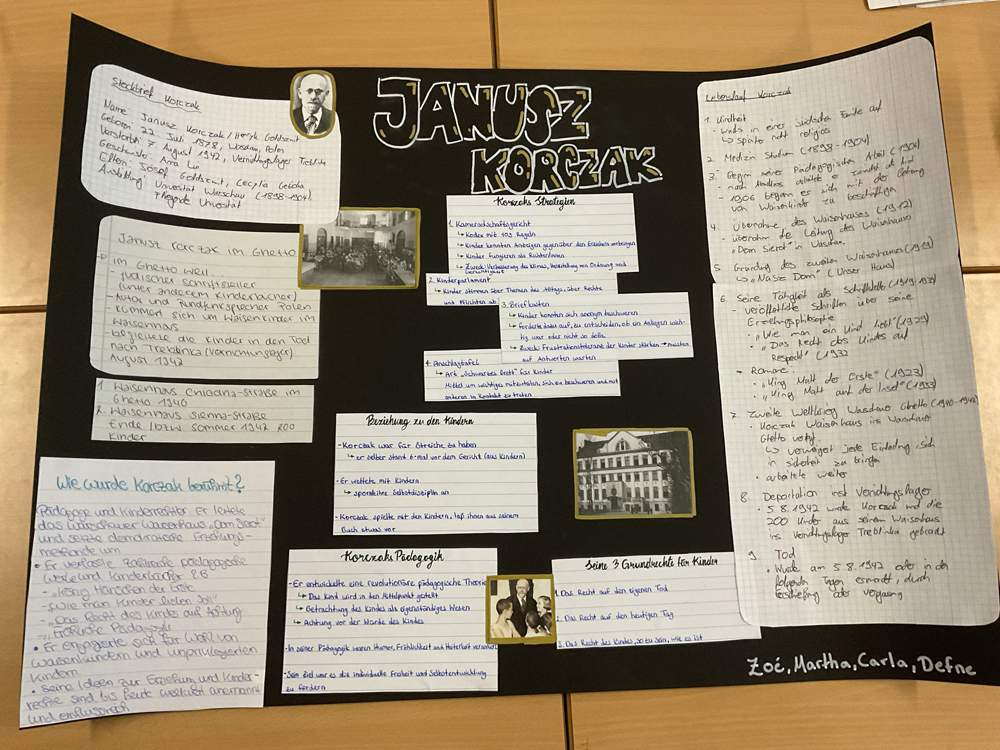 JANUSZ
KORCZAK
Steckbrief Korczak
Name: Janusz Korczak / Henryk Goldszmit
Geboren: 22. Juli 1878, Warschau, Polen
Verstorben: 7 August 1942, Vernichtungslager Treblinka
Geschwister: Anna Lui
Eltern: Josef Goldszmit, Cecylia Gebicka
Ausbildung: Universität Warschau (1898-1904),
Fliegende Universität
Janusz Korczak im Ghetto
im Ghetto weil:
- jüdischer Schriftsteller
(unter anderem Kinderbücher)
- Autor und Rundfunksprecher Polen
- kümmert sich um Waisenkinder im
Waisenhaus
- begleitete die Kinder in den Tod
nach Treblinka (Vernichtungslager)
August 1942
1. Waisenhaus Chlodna-Straße im
Ghetto 1940
2. Waisenhaus Sienna-Straße
Ende / bzw. Sommer 1942 200
Kinder
Wie wurde Korczak berühmt?
Pädagoge und Kinderarzt Er leitete
das Warschauer Waisenhaus "Dom Sierot"
und setzte demokratische Erziehungs-
methode um
• Er verfasste zahlreiche pädagogische
Werke und Kinderbücher z.B.
- "König Hänschen der Erste
- "Wie man Kinder lieben soll"
- "Das Recht des Kindes auf Achtung
- "Fröhliche Pädagogik
• Er engagierte sich für Wohl von
Waisenkindern und unprivilegierten
Kindern
• seine Ideen zur Erziehung und Kinder-
rechte sind bis heute weltweit anerkannt
und einflussreich
Korczaks Strategien
1. Kameradschaftsgericht
↳ Kodex mit 109 Regeln
↳ Kinder konnten Anzeigen gegenüber den Erziehern vorbringen
↳ Kinder fungieren als RichterInnen
↳ Zweck: Verbesserung des Klimas, Herstellung von Ordnung und
Gerechtigkeit
2. Kinderparlament
↳ Kinder stimmen über Themen des Alltags, über Rechte
und Pflichten ab
3. Briefkasten
↳ Kinder konnten sich anonym beschweren
↳ forderte dazu auf, zu entscheiden, ob ein Anliegen wich-
tig war oder nicht so dolle
↳ Zweck: Frustrationstoleranz der Kinder stärken → mussten
auf Antworten warten
4. Anschlagtafel
↳ Art "Schwarzes Brett" für Kinder
Mittel um wichtiges mitzuteilen, sich zu beschweren und mit
anderen in Kontakt zu treten
Beziehung zu den Kindern
- Korczak war für Streiche zu haben
↳ er selber stand 6-mal vor dem Gericht (aus Kindern)
- Er wettete mit Kindern
↳ spornte ihre Selbstdisziplin an
- Korczak spielte mit den Kindern, laß ihnen aus seinem
Buch etwas vor
Korczaks Pädagogik
- Er entwickelte eine revolutionäre pädagogische Theorie
↳ Das Kind wird in den Mittelpunkt gestellt
↳ Betrachtung des Kindes als eigenständiges Wesen
↳ Achtung vor der Würde des Kindes
- In seiner Pädagogik waren Humor, Fröhlichkeit und Heiterkeit
- Sein Ziel war es die individuelle Freiheit und Selbstentwicklung
zu fördern
Seine 3 Grundrechte für Kinder
1. Das Recht auf den eigenen Tod
2. Das Recht auf den heutigen Tag
3. Das Recht des Kindes, so zu sein, wie es ist
Lebenslauf Korczak
1. Kindheit
- wuchs in einer jüdischen Familie auf
↳ später nicht religiös
2. Medizin Studium (1898-1904)
3. Beginn seiner Pädagogischen Arbeit (1904)
- nach Studium arbeitete er zunächst als Arzt
- 1906 begann er sich mit der
von Waisenkinder zu beschäftigen
4. Übernahme des Waisenhauses (1912)
- übernahm die Leitung des Waisenhaus
"Dom Sierot" in Warschau
5. Gründung des zweiten Waisenhauses (1919)
↳ "Nasz Dom" (Unser Haus)
6. Seine Tätigkeit als Schriftsteller (1919-1939)
- veröffentlichte Schriften über seine
Erziehungsphilosophie
• "Wie man ein Kind liebt" (1929)
• "Das Recht des Kindes auf
Respekt" (1932
→ Romane:
• "King Matt der Erste" (1923)
• "King Matt auf der Insel" (1933)
7. Zweite Weltkrieg Warschau Ghetto (1940-1942)
• Korczak Waisenhaus ins Warschau
Ghetto verlegt
↳ verweigert jede Einladung sich
in sicherheit zu bringen
• arbeitete weiter
8. Deportation inst Vernichtungslager
• 5.8.1942 wurde Korczak und die
200 Kinder aus seinem Waisenhaus
ins Vernichtungslager Treblinka gebracht
9. Tod
• Wurde am 5.8.1942 oder in den
folgenden Tagen ermordet, durch
erschießung oder vergasung
Zoé, Martha, Carla, Defne